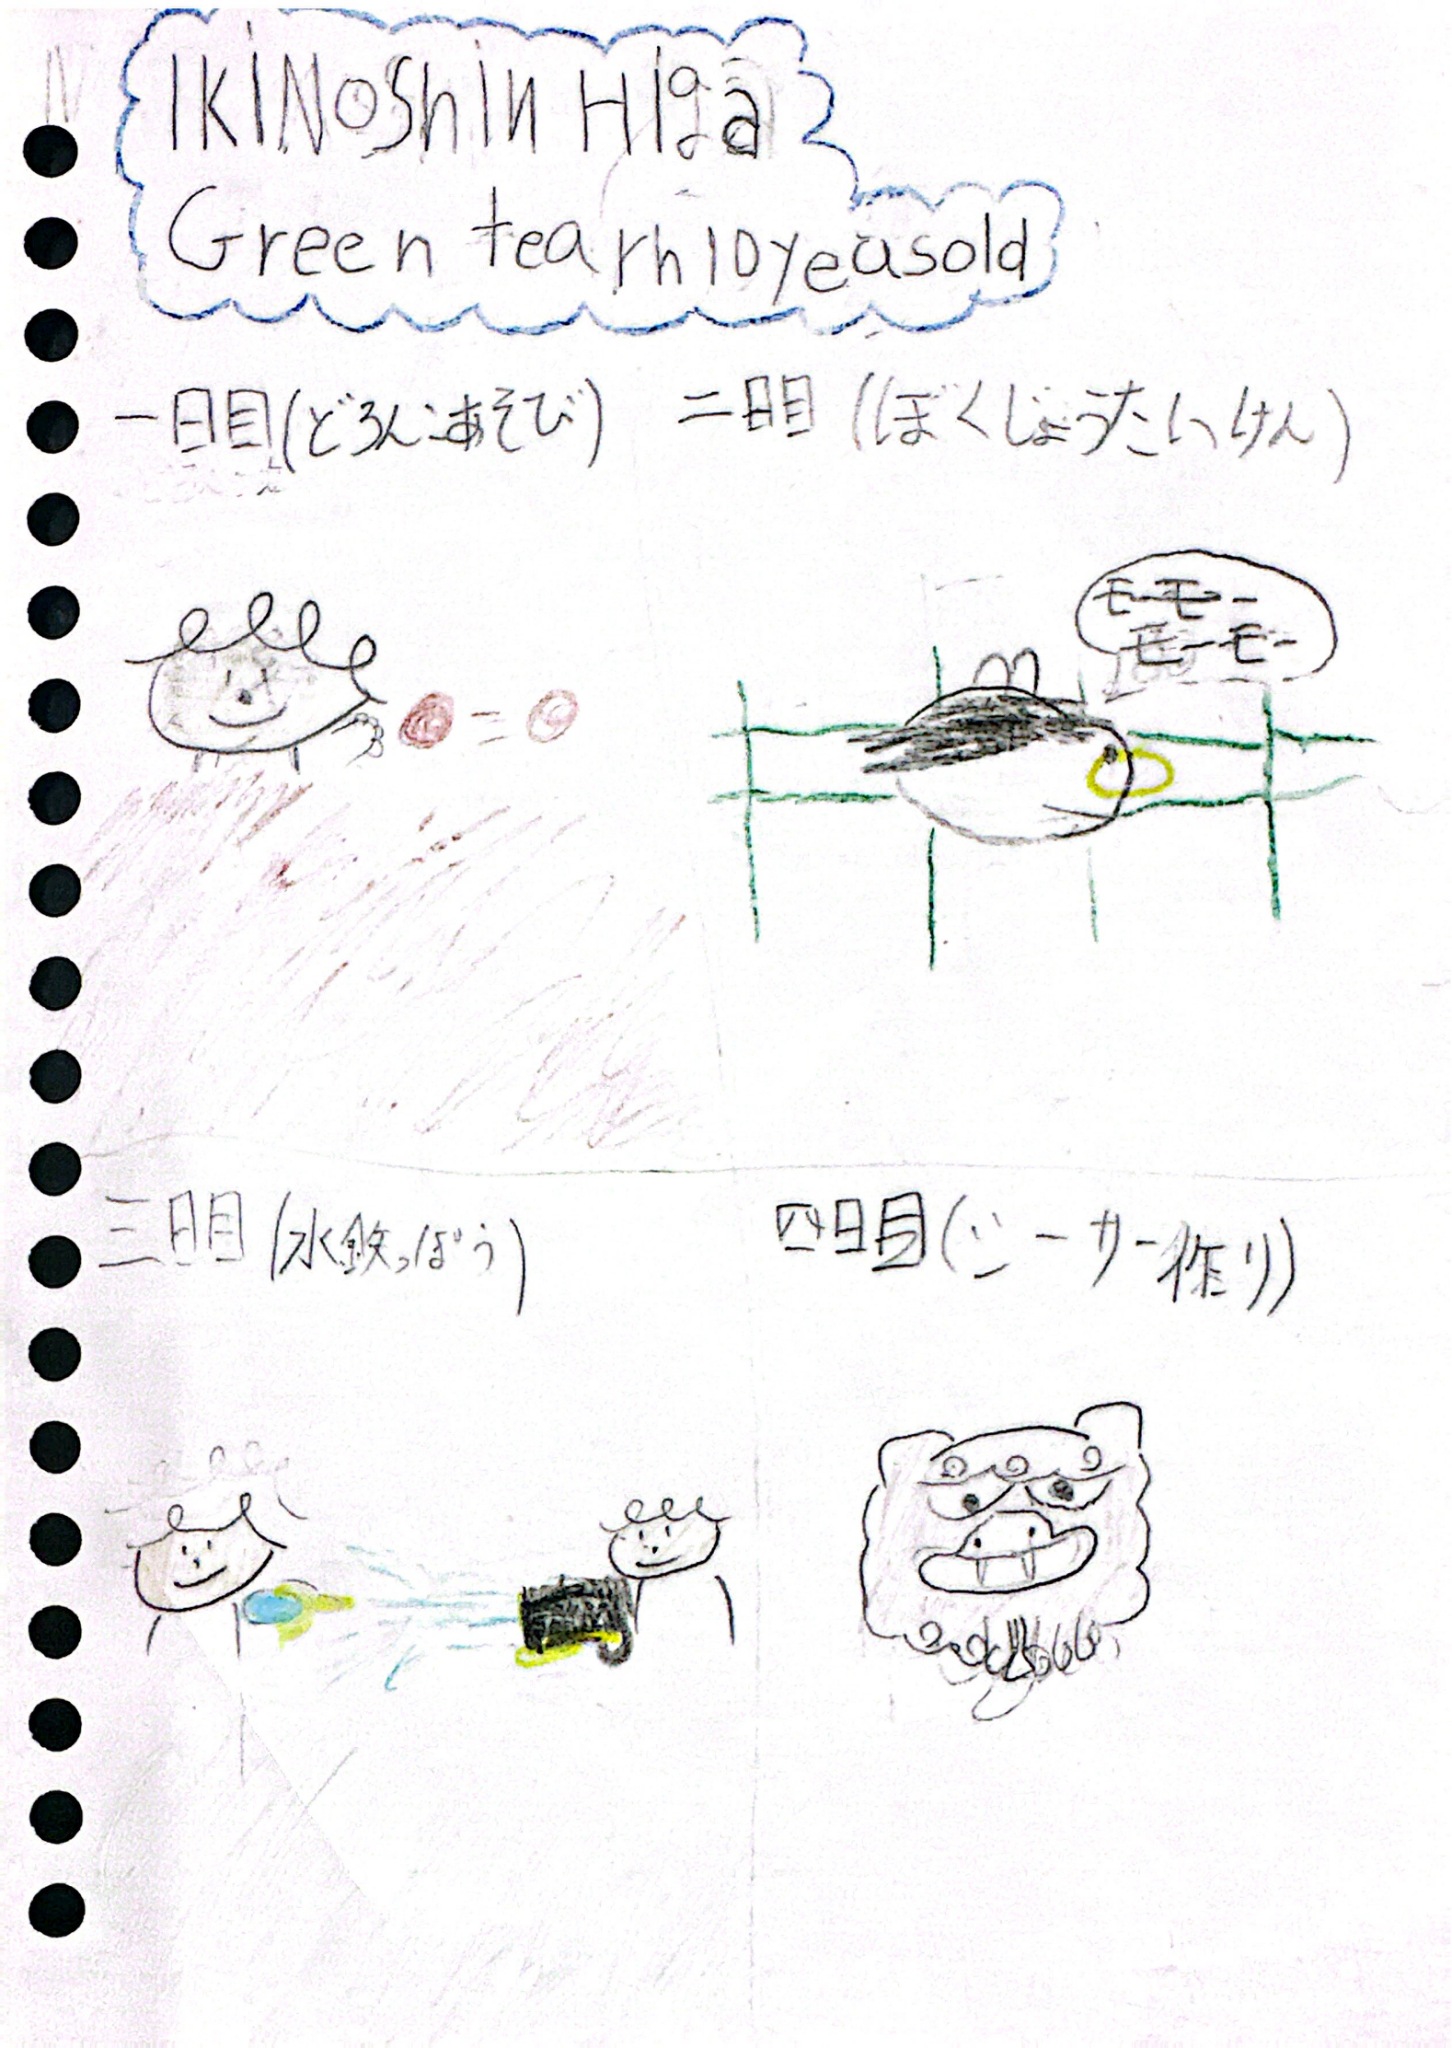 IKiNoShiN Higa
Green tearh 10 yeasold
一日目(どろんこあそび)
二日目(ぼくじょうたいけん)
モーモー
モーモー
三日目(水鉄っぽう)
四日目(シーサー作り)